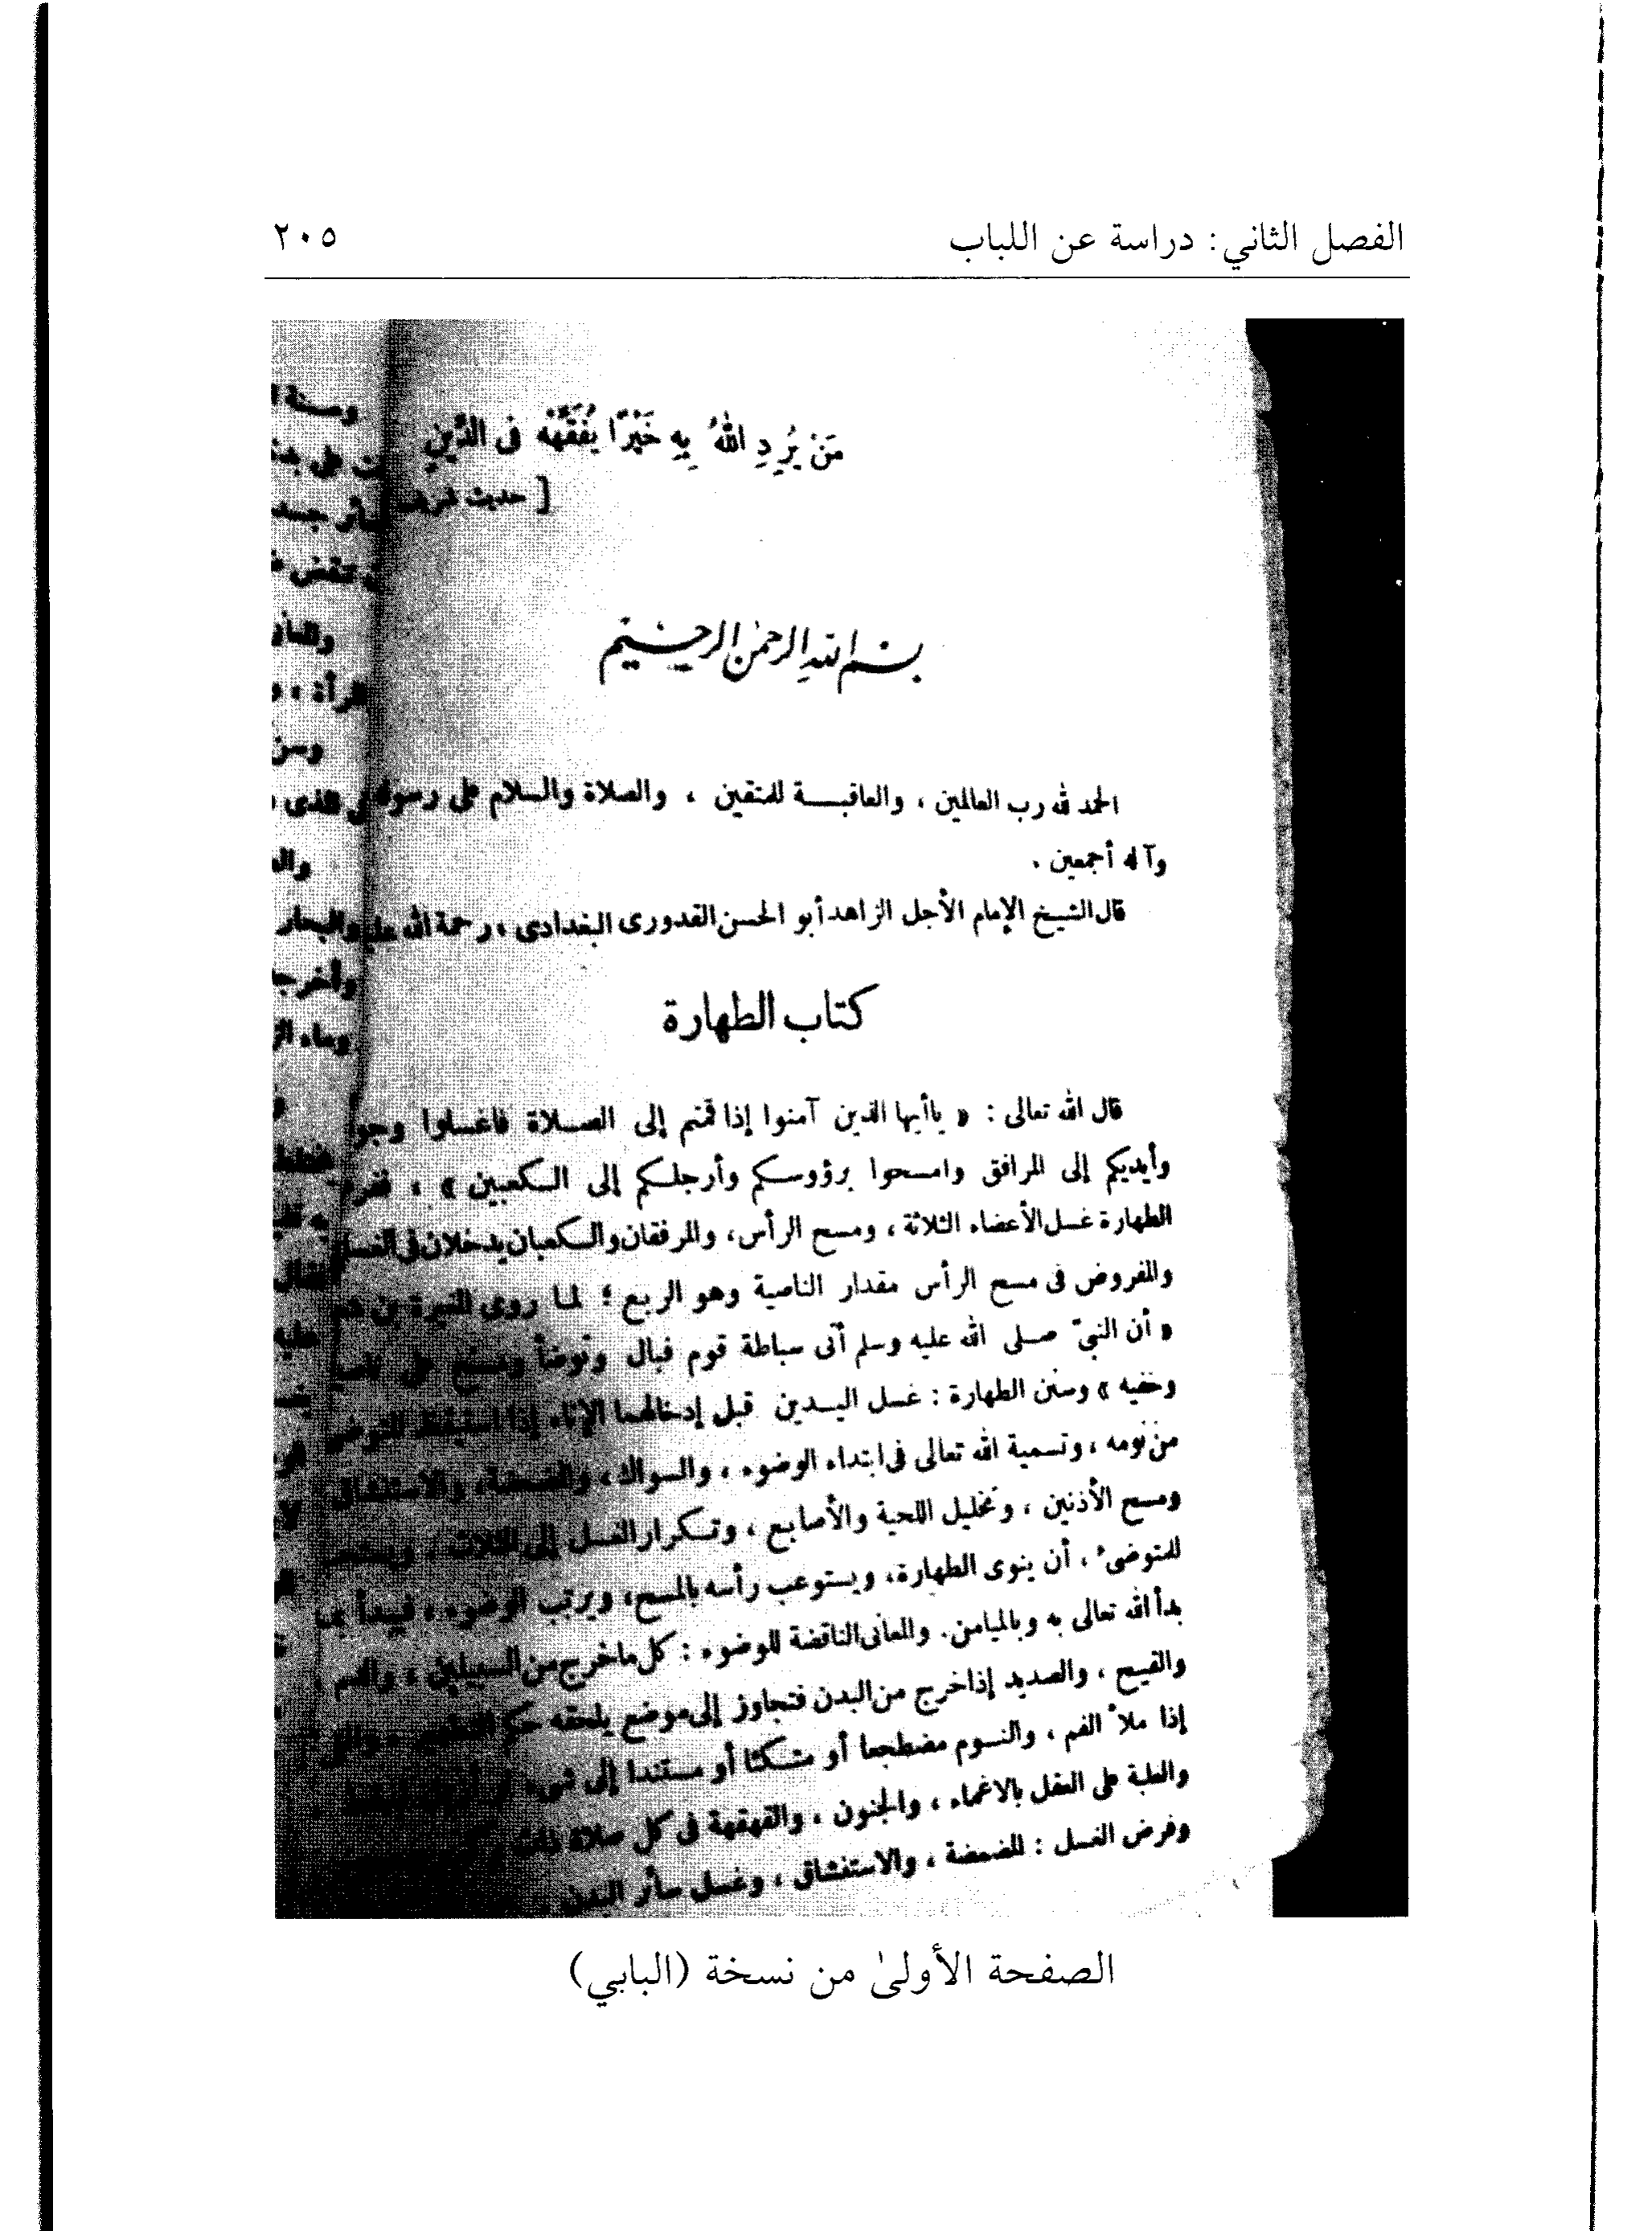 الفصل الثاني: دراسة عن اللباب
٢٠٥
مَنْ يُرِدِ اللهُ بِهِ خَيْرًا يُفَقِّهْهُ فى الدِّينِ
[ حديث شريف
بسم الله الرحمن الرحيم
الحمد لله رب العالمين ، والعاقبة للمتقين ، والصلاة والسلام على رسوله
وآله أجمعين .
قال الشيخ الإمام الأجل الزاهد أبو الحسن القدورى البغدادى ، رحمة الله
كتاب الطهارة
قال الله تعالى : « ياأيها الذين آمنوا إذا قمتم إلى الصلاة فاغسلوا
وأيديكم إلى المرافق وامسحوا برؤوسكم وأرجلكم إلى الكعبين » ،
الطهارة غسل الأعضاء الثلاثة ، ومسح الرأس، والمرفقان والكعبان يدخلان فى الغسل
والمفروض فى مسح الرأس مقدار الناصية وهو الربع ؛ لما روى المغيرة بن
« أن النبىّ صلى الله عليه وسلم أتى سباطة قوم فبال وتوضأ ومسح على
وخفيه » وسنن الطهارة : غسل اليدين قبل إدخالهما الإناء إذا استيقظ المتوضى
من نومه ، وتسمية الله تعالى فى ابتداء الوضوء ، والسواك ، والمضمضة، والاستنشاق
ومسح الأذنين ، وتخليل اللحية والأصابع ، وتكرار الغسل إلى الثلاث ،
للمتوضىء ، أن ينوى الطهارة، ويستوعب رأسه بالمسح، ويرتب الوضوء ، فيبدأ بما
بدأ الله تعالى به وبالميامن. والمعانى الناقضة للوضوء : كل ماخرج من السبيلين ، والدم ،
والقيح ، والصديد إذا خرج من البدن فتجاوز إلى موضع يلحقه حكم
إذا ملأ الفم ، والنوم مضطجعا أو متكئا أو مستندا إلى شىء
والغلبة على العقل بالاغماء ، والجنون ، والقهقهة فى كل صلاة ذات
وفرض الغسل : المضمضة ، والاستنشاق ، وغسل سائر البدن
الصفحة الأولىٰ من نسخة (البابي)